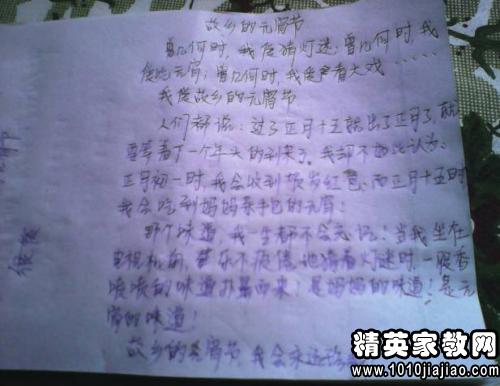 故乡的元宵节
曾几何时,我爱猜灯迷;曾几何时,我
爱吃元宵;曾几何时,我爱看大戏……
我爱故乡的元宵节
人们都说:过了正月十五就出了正月了,就
等着下一个年头的到来了。我却不如此认为:
正月初一时,我会收到压岁红包,而正月十五时
我会吃到妈妈亲手包的元宵!
那个味道,我一生都不会忘记!当我坐在
电视机前,乐不疲倦地猜着灯迷时,一股香
喷喷的味道扑鼻而来!是妈妈的味道!是元
宵的味道!
故乡的元宵节 我会永远
精英家教网
www.1010jiajiao.com